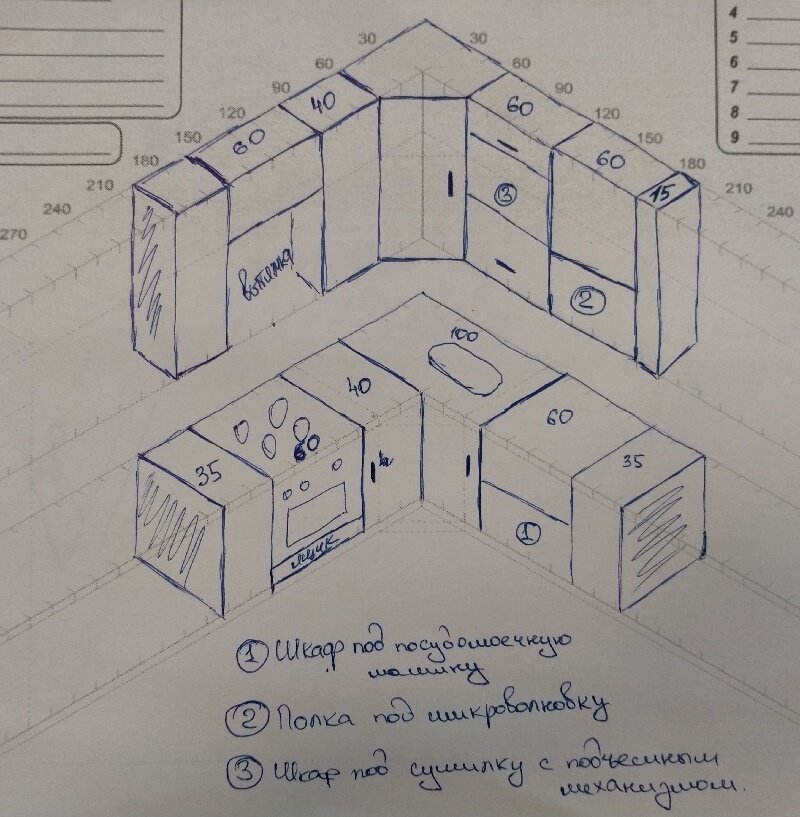 4
5
6
7
8
9
30
30
60
60
90
40
60
90
120
60
120
150
60
150
180
15
180
210
210
240
240
270
3
вытяжка
2
100
40
60
60
35
35
1
ящик
1 Шкаф под посудомоечную
машинку
2 Полка под микроволновку
3 Шкаф под сушилку с подъемным
механизмом.